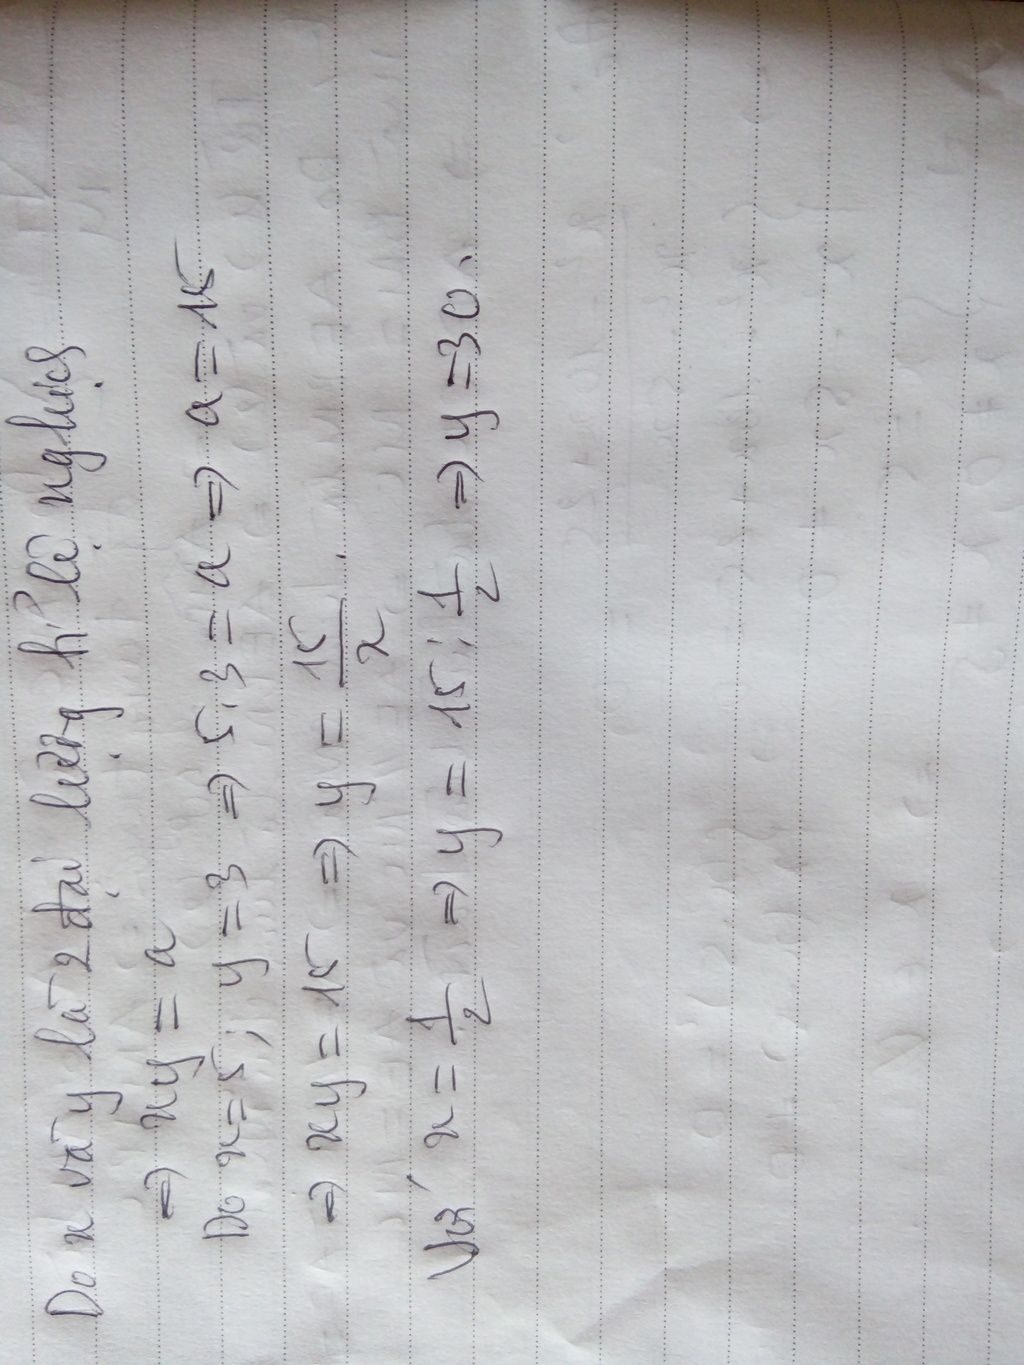 Do x và y là 2 đại lượng tỉ lệ nghịch
⇒ xy = a
Do x = 5 ; y = 3 ⇒ 5.3 = a ⇒ a = 15
⇒ xy = 15 ⇒ y = 15/x .
Với x = 1/2 ⇒ y = 15 : 1/2 ⇒ y = 30.